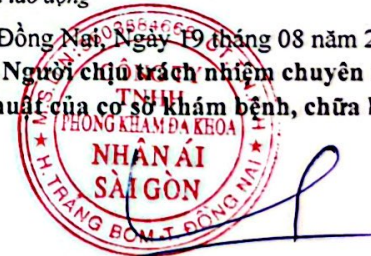 lao động
Đồng Nai, Ngày 19 tháng 08 năm 2
Người chịu trách nhiệm chuyên
thuật của cơ sở khám bệnh, chữa b
TNHH
PHÒNG KHÁM ĐA KHOA
NHÂN ÁI
SÀI GÒN
H. TRẢNG BOM - T. ĐỒNG NAI